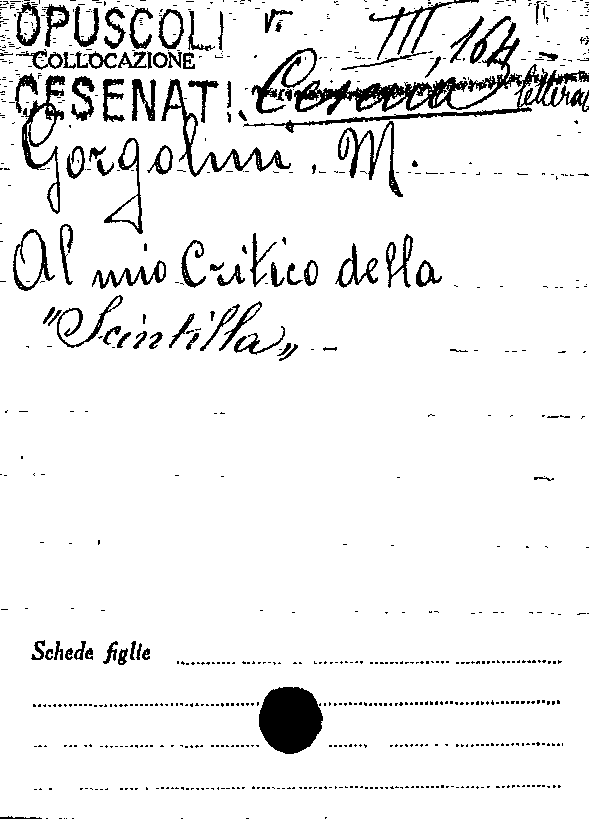 OPUSCOLI
III, 164
COLLOCAZIONE
CESENATI. Cesena
Gorgolini. M.
Al mio Critico della
"Scintilla„
Schede figlie